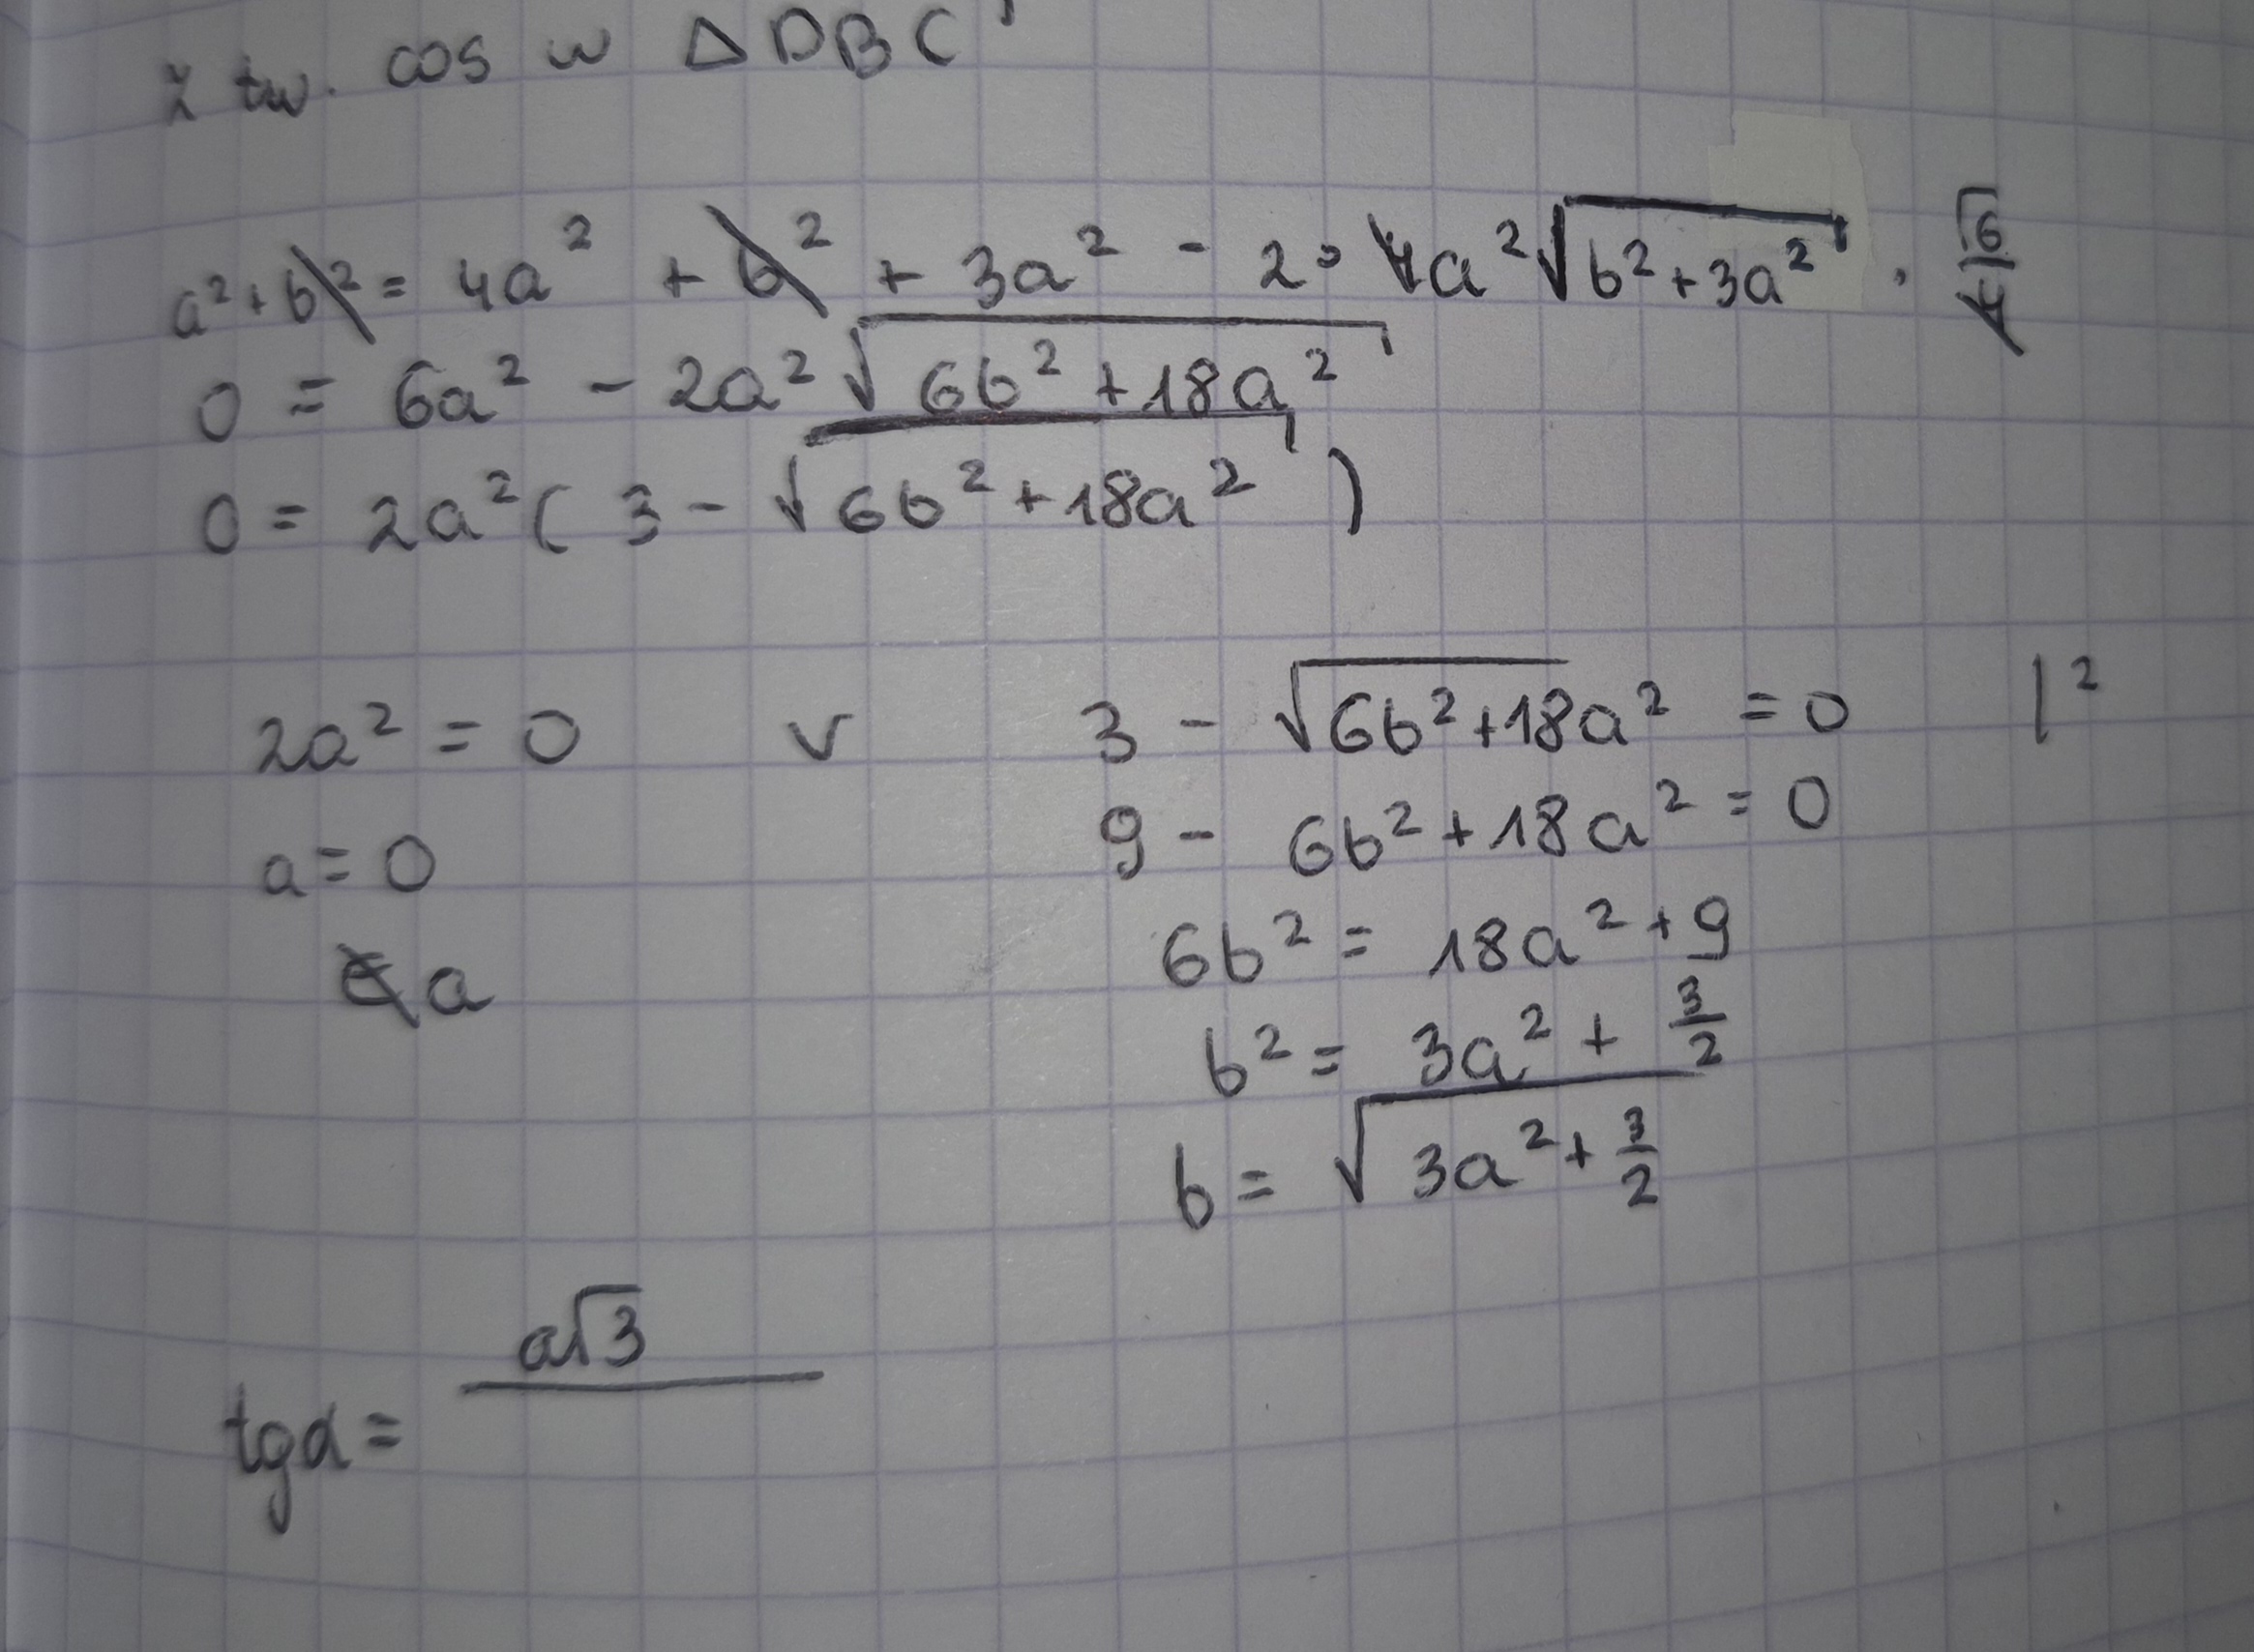 Z tw. cos w △DBC'
a² + b² = 4a² + b² + 3a² - 2 · 4a²√(b² + 3a²) · √6/4
0 = 6a² - 2a²√(6b² + 18a²)
0 = 2a²(3 - √(6b² + 18a²))
2a² = 0 v 3 - √(6b² + 18a²) = 0 |²
a = 0 9 - 6b² + 18a² = 0
a 6b² = 18a² + 9
b² = 3a² + 3/2
b = √(3a² + 3/2)
tgα = a√3